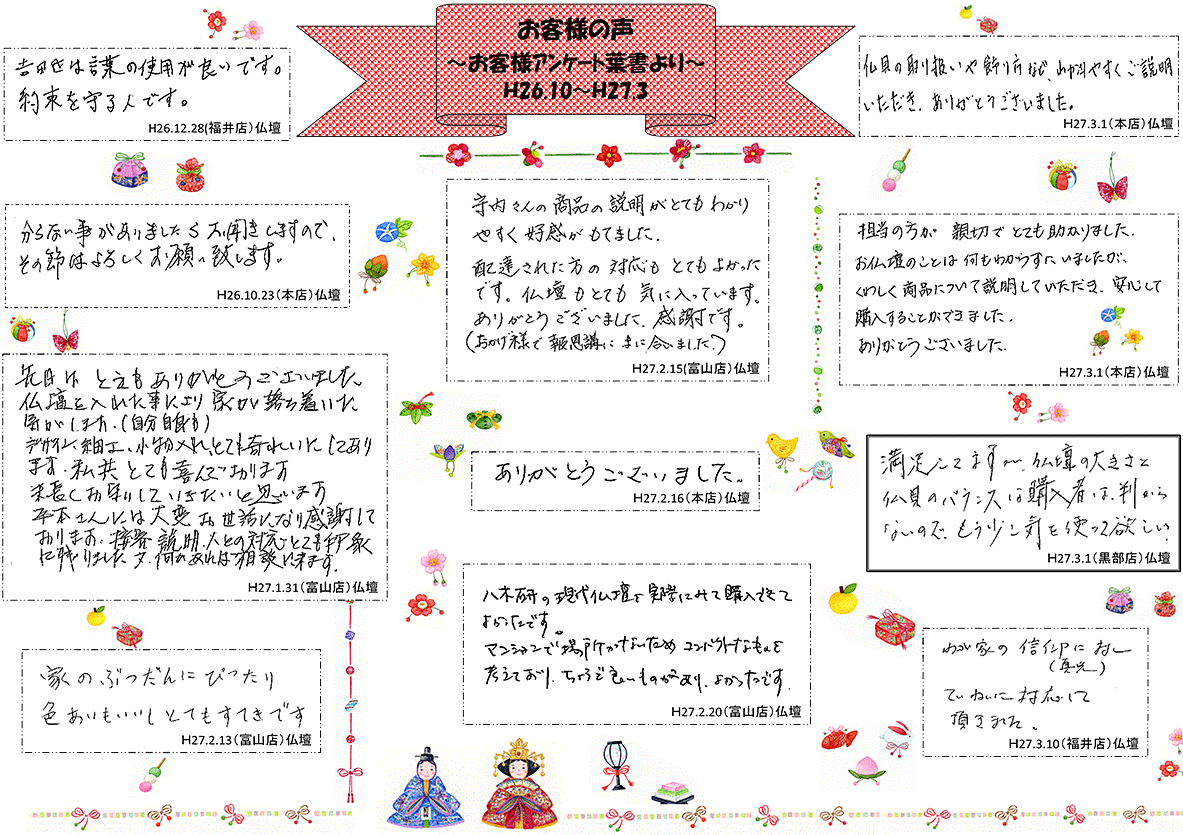 お客様の声
～お客様アンケート葉書より～
H26.10～H27.3
吉田氏は言葉の使用が良いです。
約束を守る人です。
H26.12.28(福井店)仏壇
仏具の取り扱いや飾り方など、わかりやすくご説明
いただき、ありがとうございました。
H27.3.1(本店)仏壇
分らない事がありましたらお聞きしますので、
その節はよろしくお願い致します。
H26.10.23(本店)仏壇
寺内さんの商品の説明がとてもわかり
やすく好感がもてました。
配達された方の対応もとてもよかった
です。仏壇もとても気に入っています。
ありがとうございました。感謝です。
(おかげ様で報恩講にまに合いました。)
H27.2.15(富山店)仏壇
担当の方が親切でとても助かりました。
お仏壇のことは何もわからずにいましたが、
くわしく商品について説明していただき、安心して
購入することができました。
ありがとうございました。
H27.3.1(本店)仏壇
先日はとてもありがとうございました。
仏壇を入れた事により家が落ち着いた
気がします。(自分自身も)
デザイン、細工、小物入れ、とてもきれいにしてあり
ます。私共とても喜んでおります
末長くお守りしていきたいと思います
平本さんには大変お世話になり感謝して
おります。接客、説明、人との対応とても印象
に残りました。又、何かあれば相談に来ます。
H27.1.31(富山店)仏壇
ありがとうございました。
H27.2.16(本店)仏壇
満足してますが、仏壇の大きさと
仏具のバランスは購入者は、判から
ないので、もう少し気を使って欲しい。
H27.3.1(黒部店)仏壇
八木研の現代仏壇を実際にみて購入できて
よかったです。
マンションで場所がないためコンパクトなものを
考えており、ちょうど良いものがあり、よかったです。
H27.2.20(富山店)仏壇
家のぶつだんにぴったり
色あいもいいしとてもすてきです
H27.2.13(富山店)仏壇
わが家の信仰に対し
ていねいに対応して
頂きました。
H27.3.10(福井店)仏壇